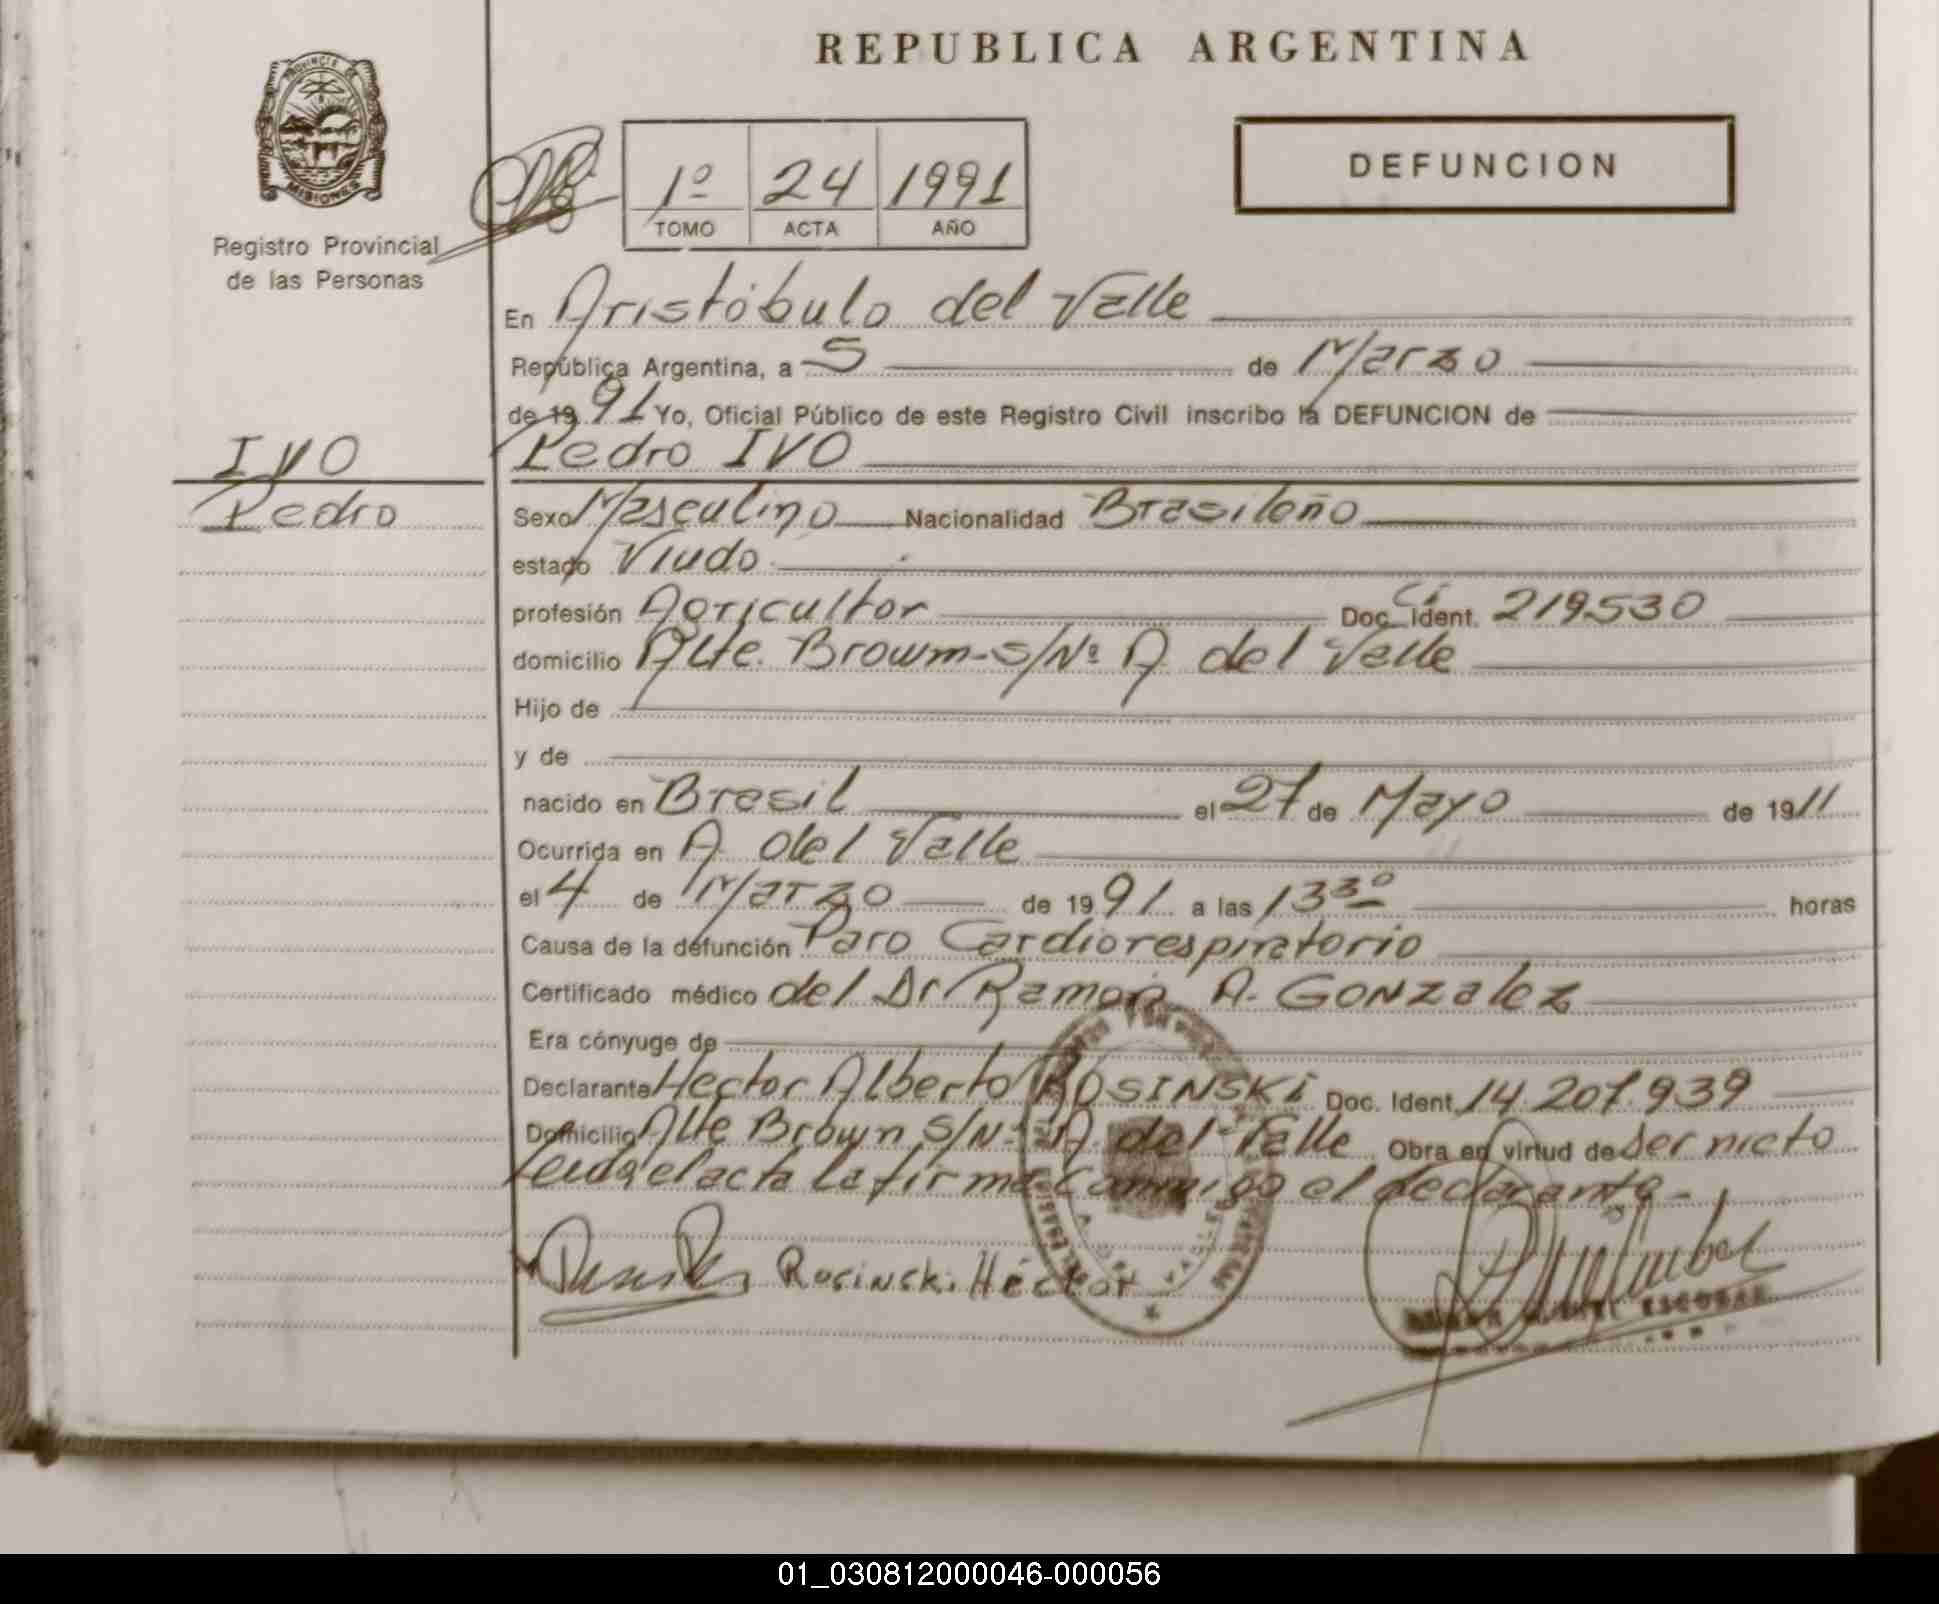 REPUBLICA ARGENTINA
PROVINCIA DE
MISIONES
Registro Provincial
de las Personas
1º 24 1991
TOMO ACTA AÑO
DEFUNCION
En Aristóbulo del Valle
República Argentina, a 5 de Marzo
de 1991 Yo, Oficial Público de este Registro Civil inscribo la DEFUNCION de
IVO
Pedro IVO
Pedro
Sexo Masculino Nacionalidad Brasileño
estado Viudo
profesión Agricultor Doc. Ident. CI 219530
domicilio Alte. Browm-S/Nº A. del Valle
Hijo de
y de
nacido en Brasil el 27 de Mayo de 1911
Ocurrida en A. del Valle
el 4 de Marzo de 1991 a las 13 30 horas
Causa de la defunción Paro Cardiorespiratorio
Certificado médico del Dr Ramon A. GONZalez
Era cónyuge de
Declarante Hector Alberto ROSINSKi Doc. Ident. 14.207.939
Domicilio Alte Brown S/Nº A. del Valle Obra en virtud de ser nieto
Leida el acta la firma conmigo el declarante-
Rosinski Héctor
ESCOBAR
01_030812000046-000056